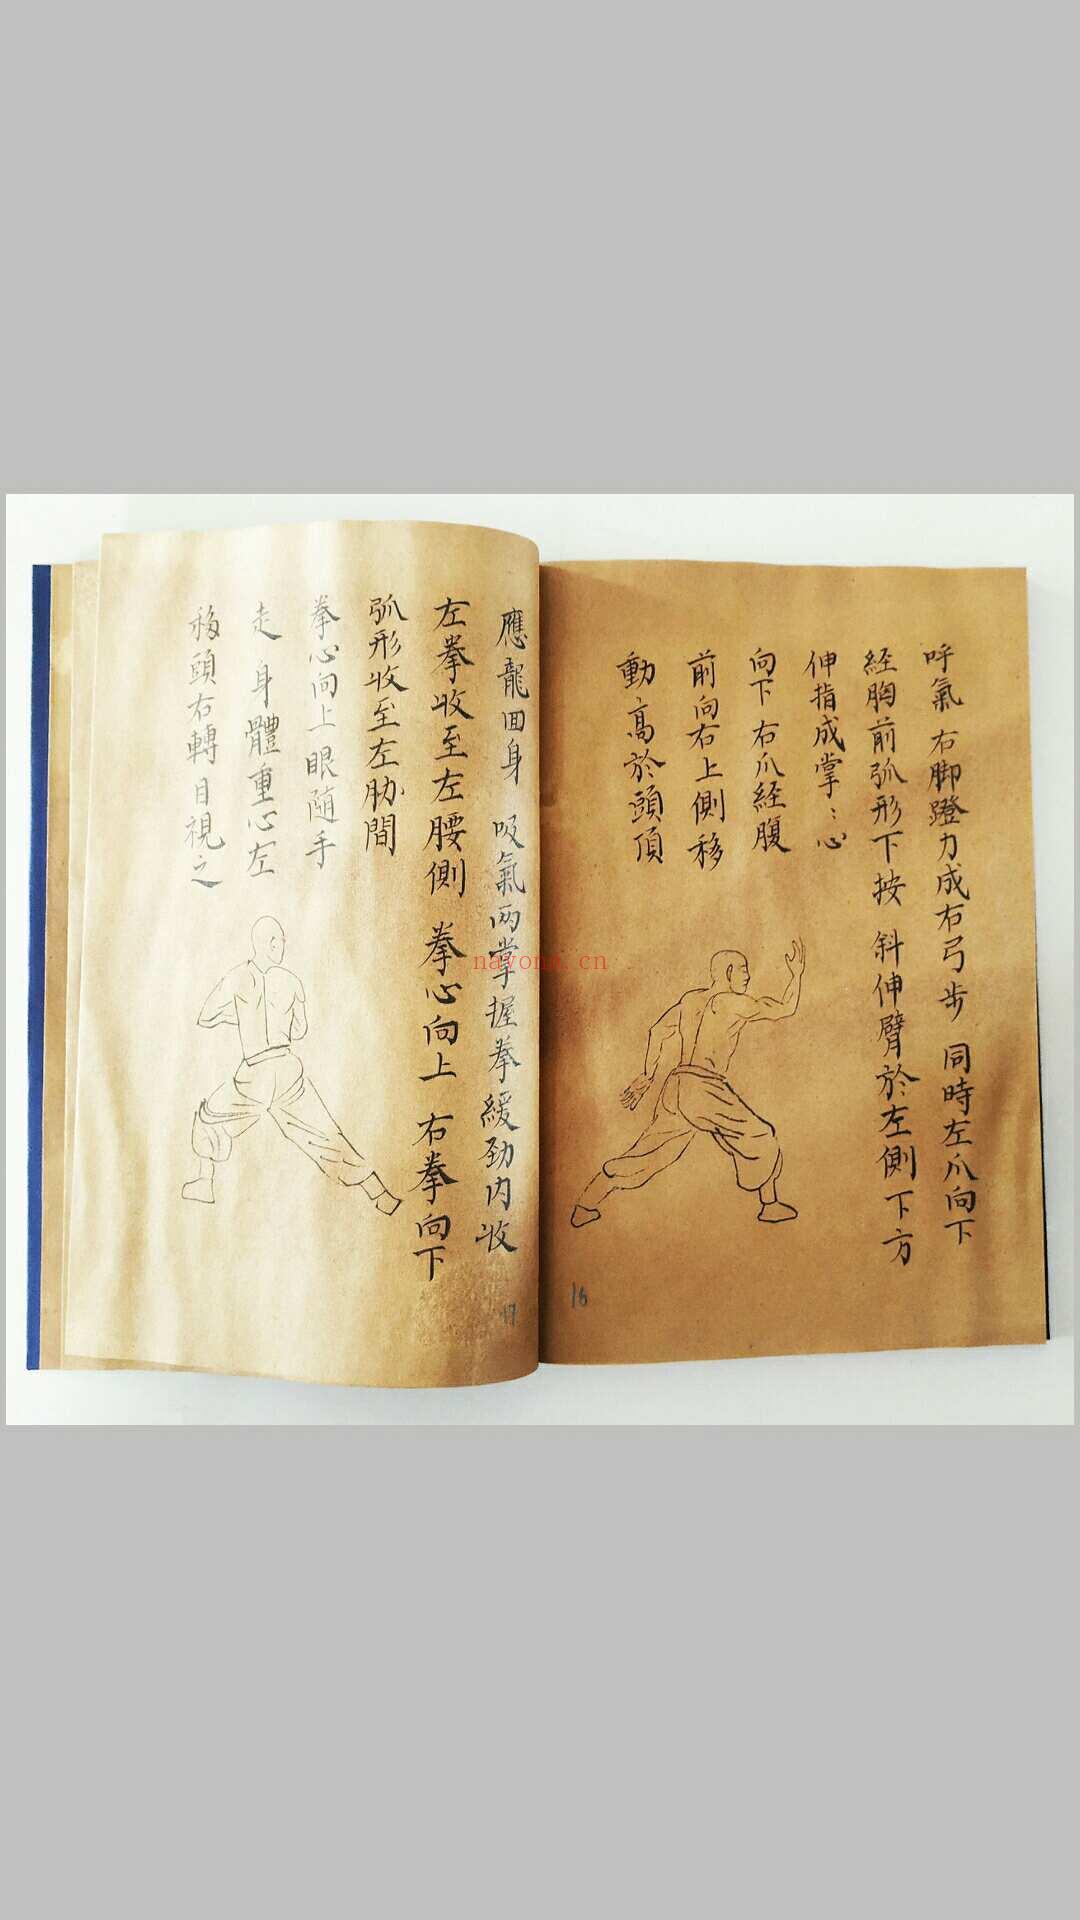 呼氣 右脚蹬力成右弓步 同時左爪向下
経胸前弧形下按 斜伸臂於左側下方
伸指成掌：心
向下 右爪経腹
前向右上側移
動，高於頭頂
16
應龍回身 吸氣两掌握拳緩勁内收
左拳收至左腰側 拳心向上 右拳向下
弧形收至左胁間
拳心向上眼随手
走 身體重心左
移頭右轉目視之
17
nayonn.cn